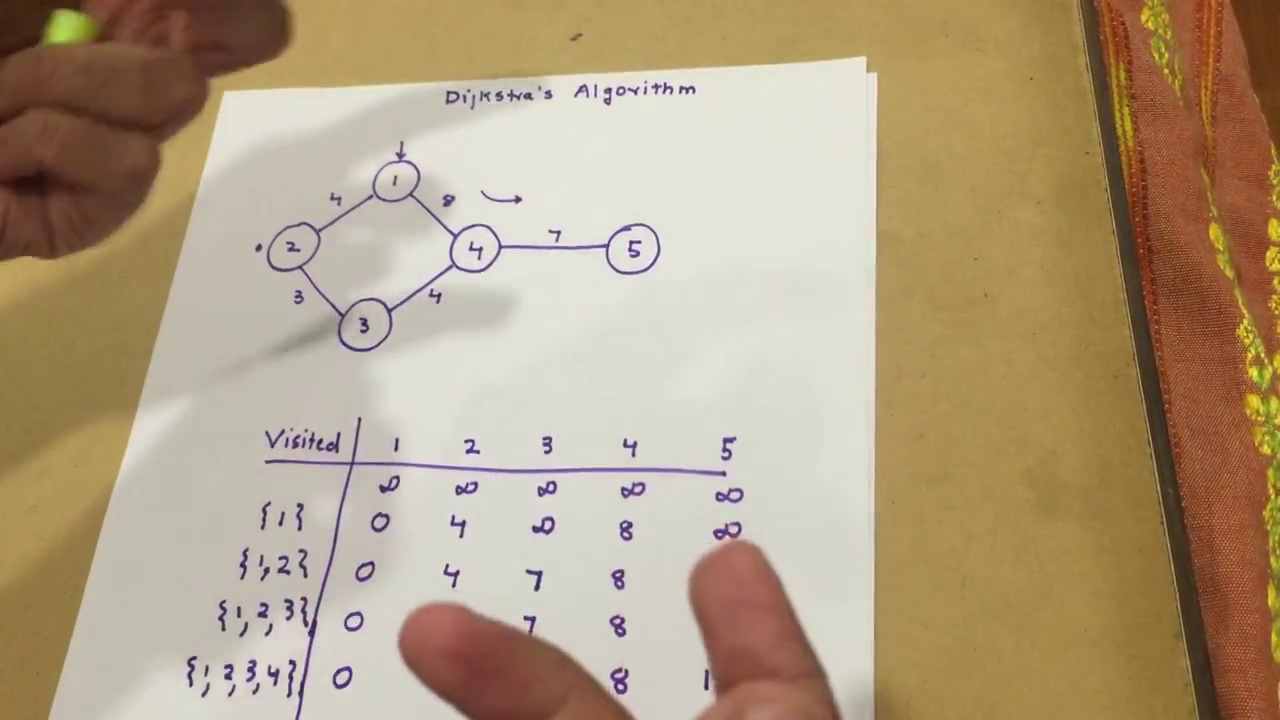 Dijkstra's Algorithm
1
4 8
2 4 7 5
3 4
3
Visited 1 2 3 4 5
∞ ∞ ∞ ∞ ∞
{1} 0 4 ∞ 8 ∞
{1,2} 0 4 7 8
{1,2,3} 0 7 8
{1,2,3,4} 0 8